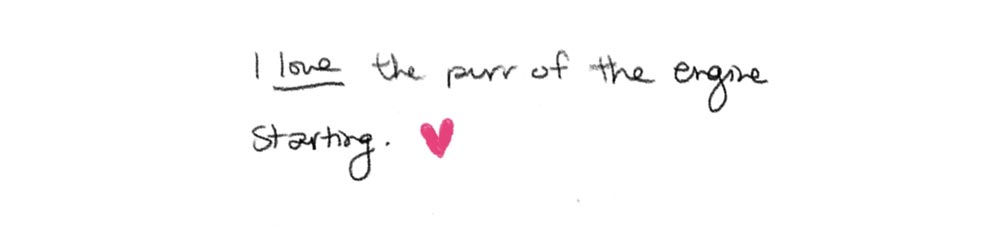 I love the purr of the engine
starting.